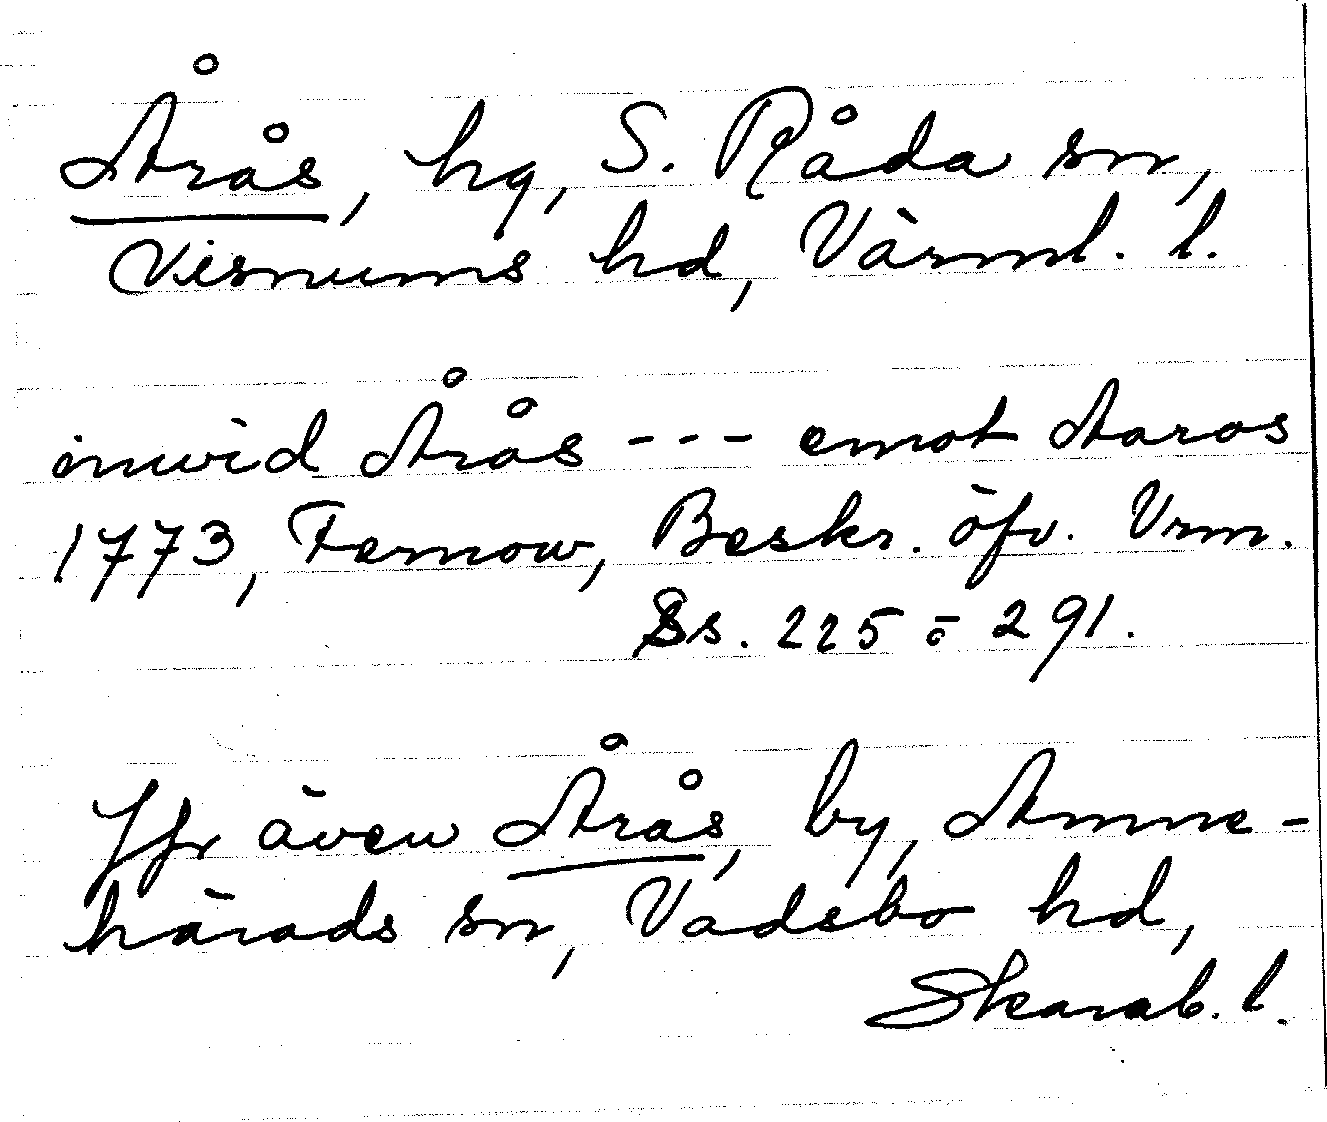 Årås, hg, S. Råda sn,
Visnums hd, Värml. l.
inwid Årås --- emot Aaros
1773, Fernow, Beskr. öfv. Vrm.
Ss. 225 o 291.
Jfr även Årås, by, Amne-
härads sn, Vadsbo hd,
Skarab. l.